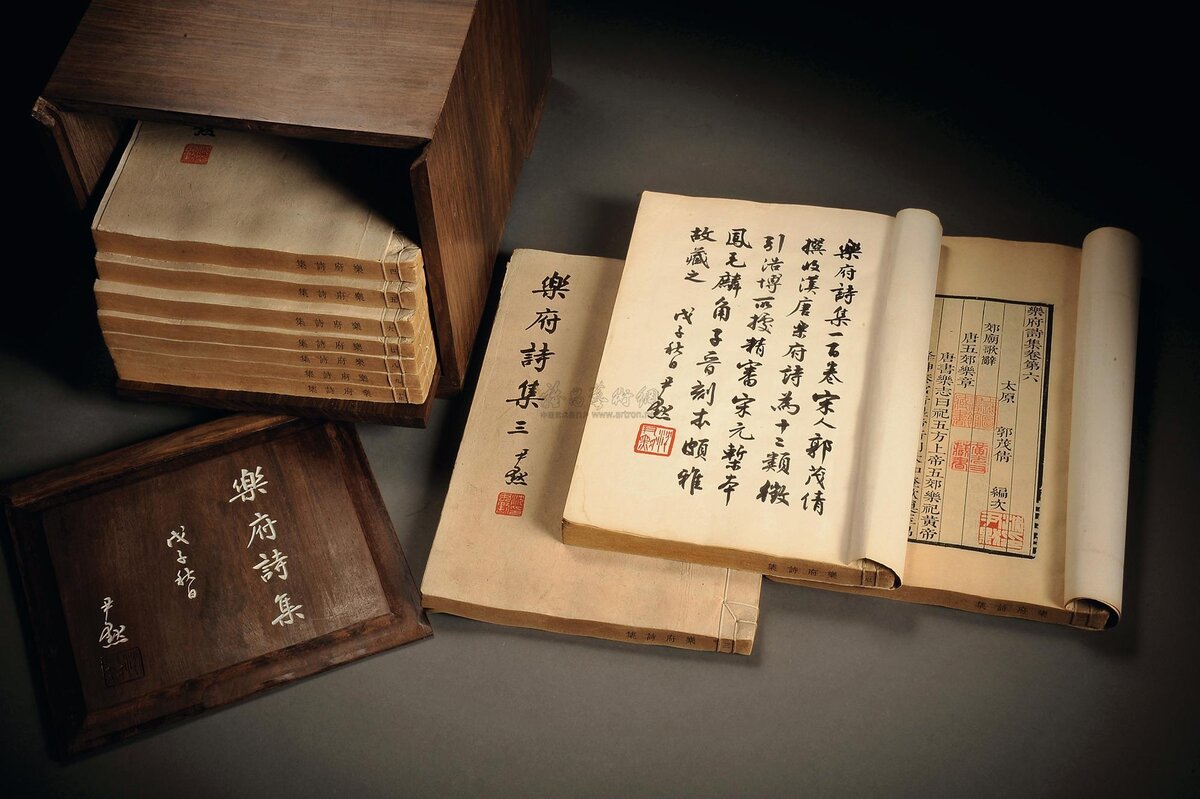 樂府詩集
樂府詩集
樂府詩集
樂府詩集
樂府詩集
樂府詩集
樂府詩集
樂府詩集
戊子秋日
尹默
樂府詩集三
尹默
樂府詩集
樂府詩集一百卷宋人郭茂倩
撰收漢唐樂府詩為十二類徵
引浩博所據精審宋元槧本
鳳毛麟角子音刻本頗雅
故藏之 戊子秋日尹默
樂府詩集
樂府詩集卷第六
太原 郭茂倩 編次
郊廟歌辭
唐五郊樂章
唐書樂志曰祀五方上帝五郊樂祀黃帝
樂府詩集
www.artron